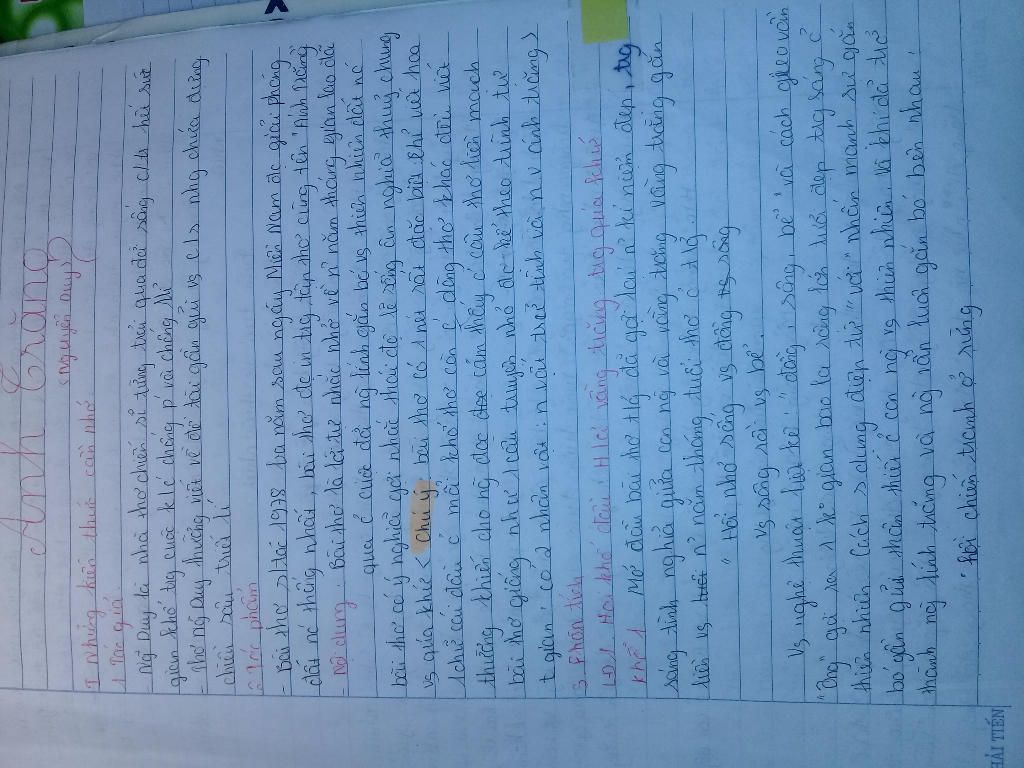 Ánh Trăng
< Nguyễn Duy >
I Những kiến thức cần nhớ
1 Tác giả
- Ng Duy là nhà thơ chiến sĩ từng trải qua đời sống clts hết sức
gian khổ tng cuộc k/c chống P và chống Mĩ
- Thơ ng Duy thường viết về đề tài gần gũi vs cls nhg chứa đựng
chiều sâu triết lí
2 Tác phẩm
- Bài thơ st tao 1978 ba năm sau ngày Miền Nam đc giải phóng
đất nc thống nhất, bài thơ đc in tng tập thơ cùng tên "Ánh trăng"
- Nội dung - Bài thơ là lời tự nhắc nhở về n năm tháng gian lao đã
qua c cuộc đời ng lính gắn bó vs thiên nhiên đất nc
bài thơ có ý nghĩa gợi nhắc thái độ lẽ sống ân nghĩa thuỷ chung
vs quá khứ < Chú ý, bài thơ có 1 nét rất độc đáo ko viết hoa
1 chữ cái đầu c mỗi khổ thơ còn c dòng thơ khác đều viết
thường khiến cho ng đọc cảm thấy c câu thơ liền mạch
bài thơ giống như 1 câu chuyện nhỏ đc kể theo trình tự
t gian có 2 nhân vật: n vật trữ tình và n v ánh trăng >
3. Phân tích
LĐ1 Hai khổ đầu: H/ả vầng trăng tng quá khứ
Khổ 1 Mở đầu bài thơ t/g đã gợi lại n kỉ niệm đẹp, tng
sáng tình nghĩa giữa con ng và vầng trăng vầng trăng gắn
liền vs n năm tháng tuổi thơ c t/g
" Hồi nhỏ sống vs đồng
vs sông rồi vs bể"
vs nghệ thuật liệt kê: " đồng, sông, bể" và cách gieo vần
"ông" gợi ra k gian bao la rộng lớn tươi đẹp tng sáng c
thiên nhiên Cách s dụng điệp từ "với" nhấn mạnh sự gắn
bó gần gũi thân thiết c con ng vs thiên nhiên, và khi đã trở
thành ng lính trăng và ng vẫn luôn gắn bó bên nhau.
" Hồi chiến tranh ở rừng
HẢI TIẾN